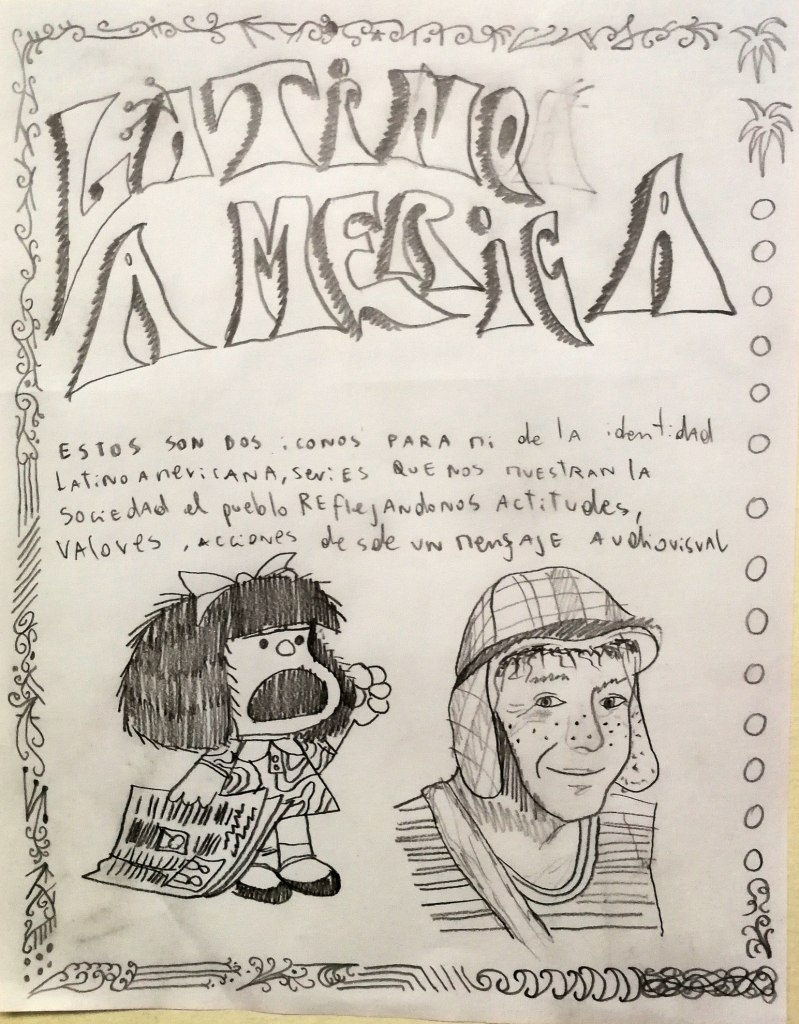 LATINO
AMERICA
ESTOS SON DOS iCONOS PARA mi de lA identidAd
LATiNOAMERiCANA, series QUE NOS MUESTRAN lA
SOCiEDAd el pueblo REflejANdONOS ACTiTUdes,
VAlores, ACCiONES desde UN MENSAJE AUdiovisUAl